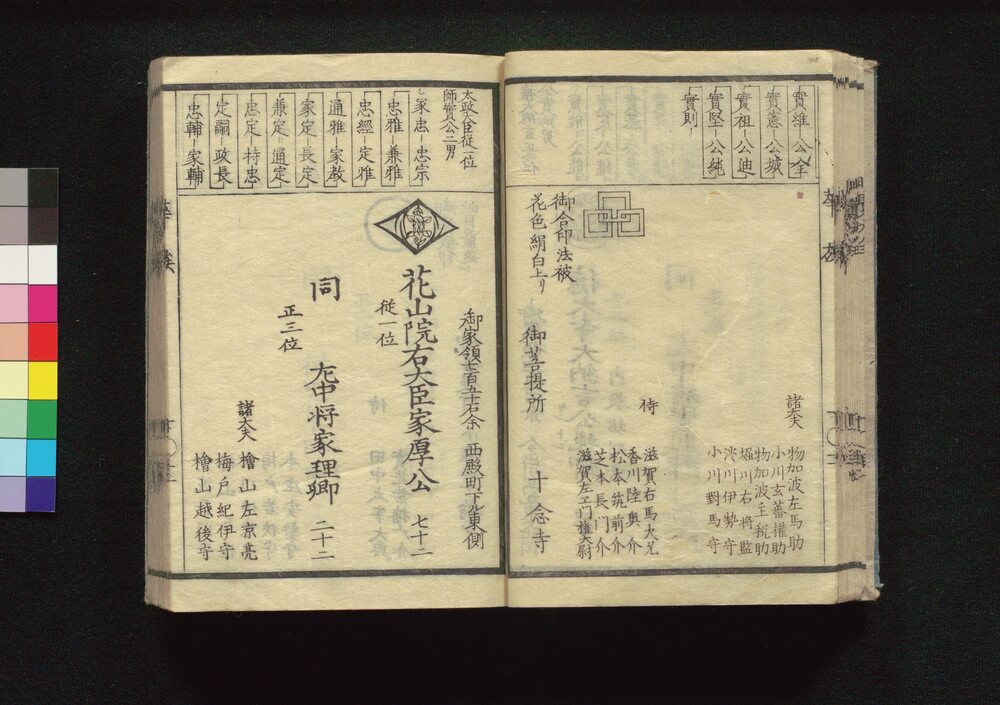 實維ー公全
實憲ー公城
實祖ー公迪
實堅ー公純
實則
諸大夫
物加波左馬助
小川玄蕃權助
物加波主税助
堀川右将監
湊川伊勢守
小川對馬守
侍
滋賀右馬大允
香川陸奥介
松本筑前介
芝本長門介
滋賀左ヱ門權大尉
御合印法被
花色絹白上リ
御菩提所 十念寺
太政大臣従一位
師實公二男
家忠ー忠宗
忠雅ー兼雅
忠經ー定雅
通雅ー家教
家定ー長定
兼定ー通定
忠定ー持忠
定嗣ー政長
忠輔ー家輔
御家領七百五十石余 西殿町下ル東側
花山院右大臣家厚公 七十二
従一位
同 左中将家理卿 二十二
正三位
諸大夫
檜山左京亮
梅戸紀伊守
檜山越後守